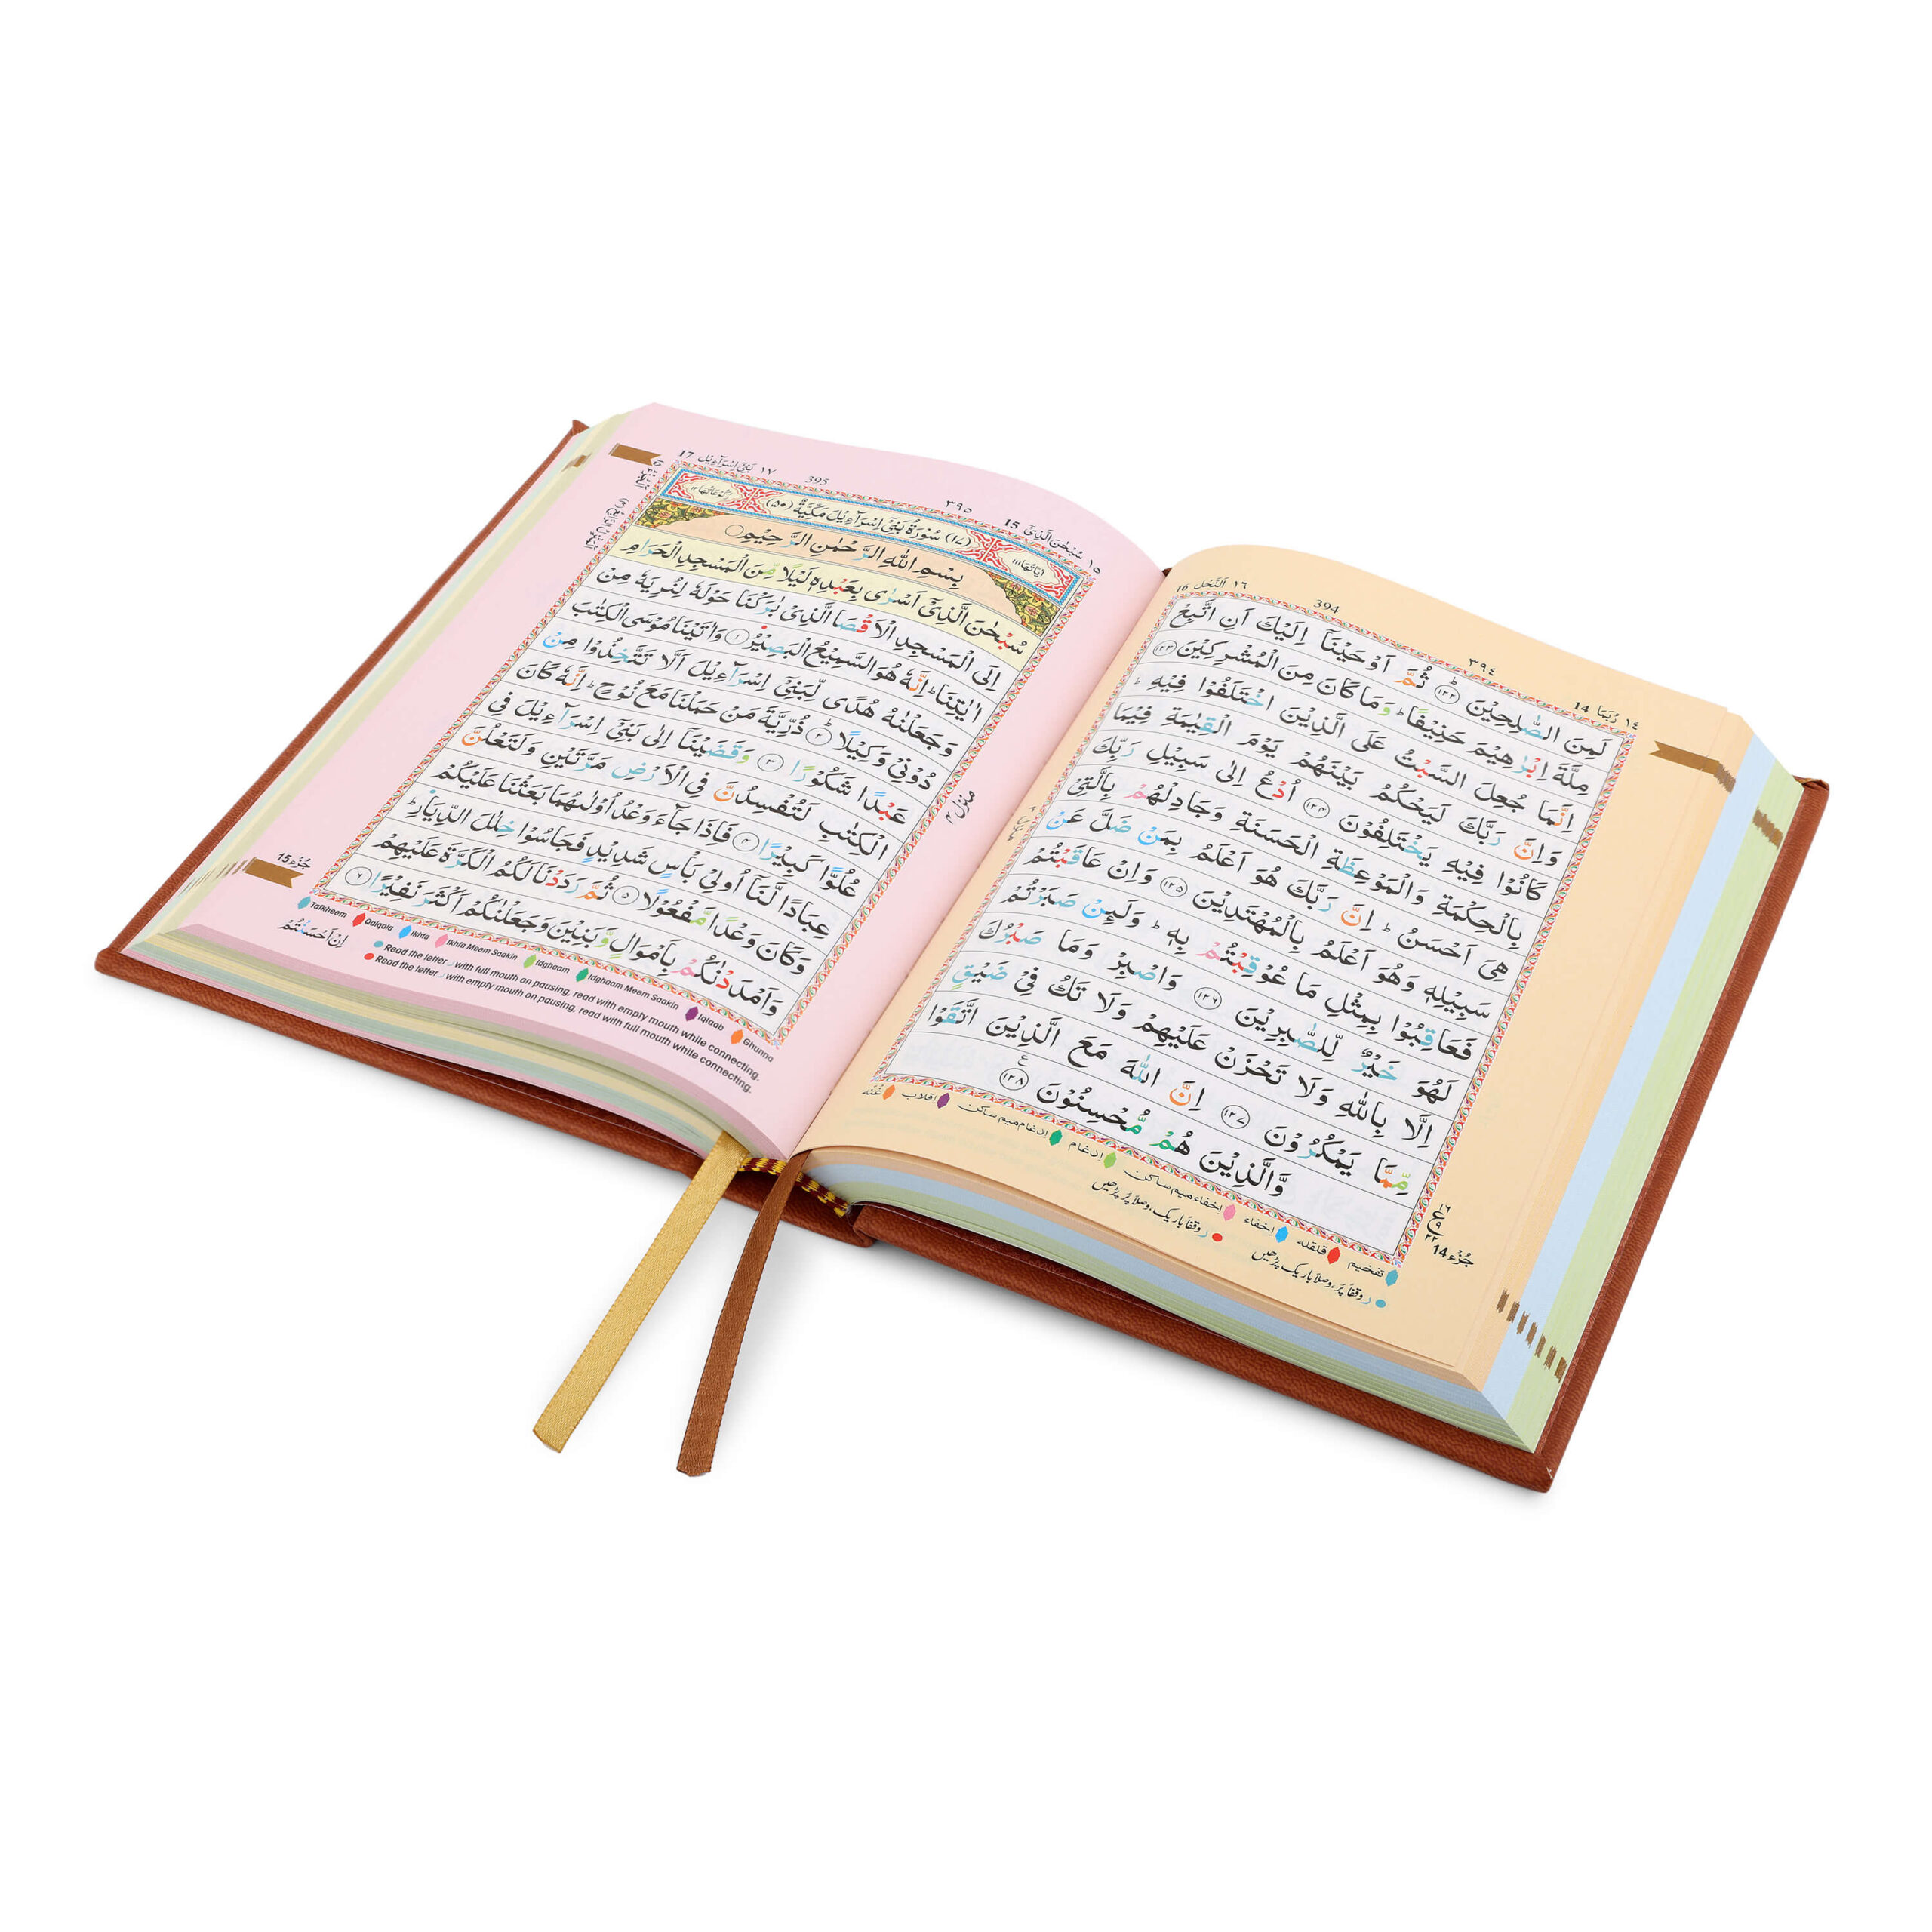 16 اَلنَّحْل ١٦
394
٣٩٤
14 رُبَمَا ١٤
لَمِنَ الصّٰلِحِيْنَ ﴿١٢٢﴾ ثُمَّ اَوْحَيْنَاۤ اِلَيْكَ اَنِ اتَّبِعْ
مِلَّةَ اِبْرٰهِيْمَ حَنِيْفًا ؕ وَمَا كَانَ مِنَ الْمُشْرِكِيْنَ ﴿١٢٣﴾
اِنَّمَا جُعِلَ السَّبْتُ عَلَى الَّذِيْنَ اخْتَلَفُوْا فِيْهِ ؕ
وَاِنَّ رَبَّكَ لَيَحْكُمُ بَيْنَهُمْ يَوْمَ الْقِيٰمَةِ فِيْمَا
كَانُوْا فِيْهِ يَخْتَلِفُوْنَ ﴿١٢٤﴾ اُدْعُ اِلٰى سَبِيْلِ رَبِّكَ
بِالْحِكْمَةِ وَالْمَوْعِظَةِ الْحَسَنَةِ وَجَادِلْهُمْ بِالَّتِيْ
هِيَ اَحْسَنُ ؕ اِنَّ رَبَّكَ هُوَ اَعْلَمُ بِمَنْ ضَلَّ عَنْ
سَبِيْلِهٖ وَهُوَ اَعْلَمُ بِالْمُهْتَدِيْنَ ﴿١٢٥﴾ وَاِنْ عَاقَبْتُمْ
فَعَاقِبُوْا بِمِثْلِ مَا عُوْقِبْتُمْ بِهٖ ؕ وَلَئِنْ صَبَرْتُمْ
لَهُوَ خَيْرٌ لِّلصّٰبِرِيْنَ ﴿١٢٦﴾ وَاصْبِرْ وَمَا صَبْرُكَ
اِلَّا بِاللّٰهِ وَلَا تَحْزَنْ عَلَيْهِمْ وَلَا تَكُ فِيْ ضَيْقٍ
مِّمَّا يَمْكُرُوْنَ ﴿١٢٧﴾ اِنَّ اللّٰهَ مَعَ الَّذِيْنَ اتَّقَوْا
وَّالَّذِيْنَ هُمْ مُّحْسِنُوْنَ ﴿١٢٨﴾
جُزْء 14
تفخيم قلقله اخفاء اخفاء ميم ساكن ادغام ادغام ميم ساكن اقلاب غُنّه
ر وقفاً پُر، وصلاً باریک پڑھیں
ر وقفاً باریک، وصلاً پُر پڑھیں
17 بَنِيْٓ اِسْرَآءِيْل ١٧
395
٣٩٥
15 سُبْحٰنَ الَّذِيْٓ ١٥
اٰيَاتُهَا ١١١ (١٧) سُوْرَةُ بَنِيْٓ اِسْرَآءِيْلَ مَكِّيَّةٌ (٥٠) رُكُوْعَاتُهَا ١٢
بِسْمِ اللّٰهِ الرَّحْمٰنِ الرَّحِيْمِ
سُبْحٰنَ الَّذِيْٓ اَسْرٰى بِعَبْدِهٖ لَيْلًا مِّنَ الْمَسْجِدِ الْحَرَامِ
اِلَى الْمَسْجِدِ الْاَقْصَا الَّذِيْ بٰرَكْنَا حَوْلَهٗ لِنُرِيَهٗ مِنْ
اٰيٰتِنَا ؕ اِنَّهٗ هُوَ السَّمِيْعُ الْبَصِيْرُ ﴿١﴾ وَاٰتَيْنَا مُوْسَى الْكِتٰبَ
وَجَعَلْنٰهُ هُدًى لِّبَنِيْٓ اِسْرَآءِيْلَ اَلَّا تَتَّخِذُوْا مِنْ
دُوْنِيْ وَكِيْلًا ﴿٢﴾ ذُرِّيَّةَ مَنْ حَمَلْنَا مَعَ نُوْحٍ ؕ اِنَّهٗ كَانَ
عَبْدًا شَكُوْرًا ﴿٣﴾ وَقَضَيْنَآ اِلٰى بَنِيْٓ اِسْرَآءِيْلَ فِي
الْكِتٰبِ لَتُفْسِدُنَّ فِي الْاَرْضِ مَرَّتَيْنِ وَلَتَعْلُنَّ
عُلُوًّا كَبِيْرًا ﴿٤﴾ فَاِذَا جَآءَ وَعْدُ اُوْلٰىهُمَا بَعَثْنَا عَلَيْكُمْ
عِبَادًا لَّنَآ اُولِيْ بَاْسٍ شَدِيْدٍ فَجَاسُوْا خِلٰلَ الدِّيَارِ ؕ
وَكَانَ وَعْدًا مَّفْعُوْلًا ﴿٥﴾ ثُمَّ رَدَدْنَا لَكُمُ الْكَرَّةَ عَلَيْهِمْ
وَاَمْدَدْنٰكُمْ بِاَمْوَالٍ وَّبَنِيْنَ وَجَعَلْنٰكُمْ اَكْثَرَ نَفِيْرًا ﴿٦﴾
منزل ٤
جُزْء 15
Tafkheem Qalqala Ikhfa Ikhfa Meem Saakin Idghaam Idghaam Meem Saakin Iqlaab Ghunna
اِنْ اَحْسَنْتُمْ
Read the letter ر with full mouth on pausing, read with empty mouth while connecting.
Read the letter ر with empty mouth on pausing, read with full mouth while connecting.